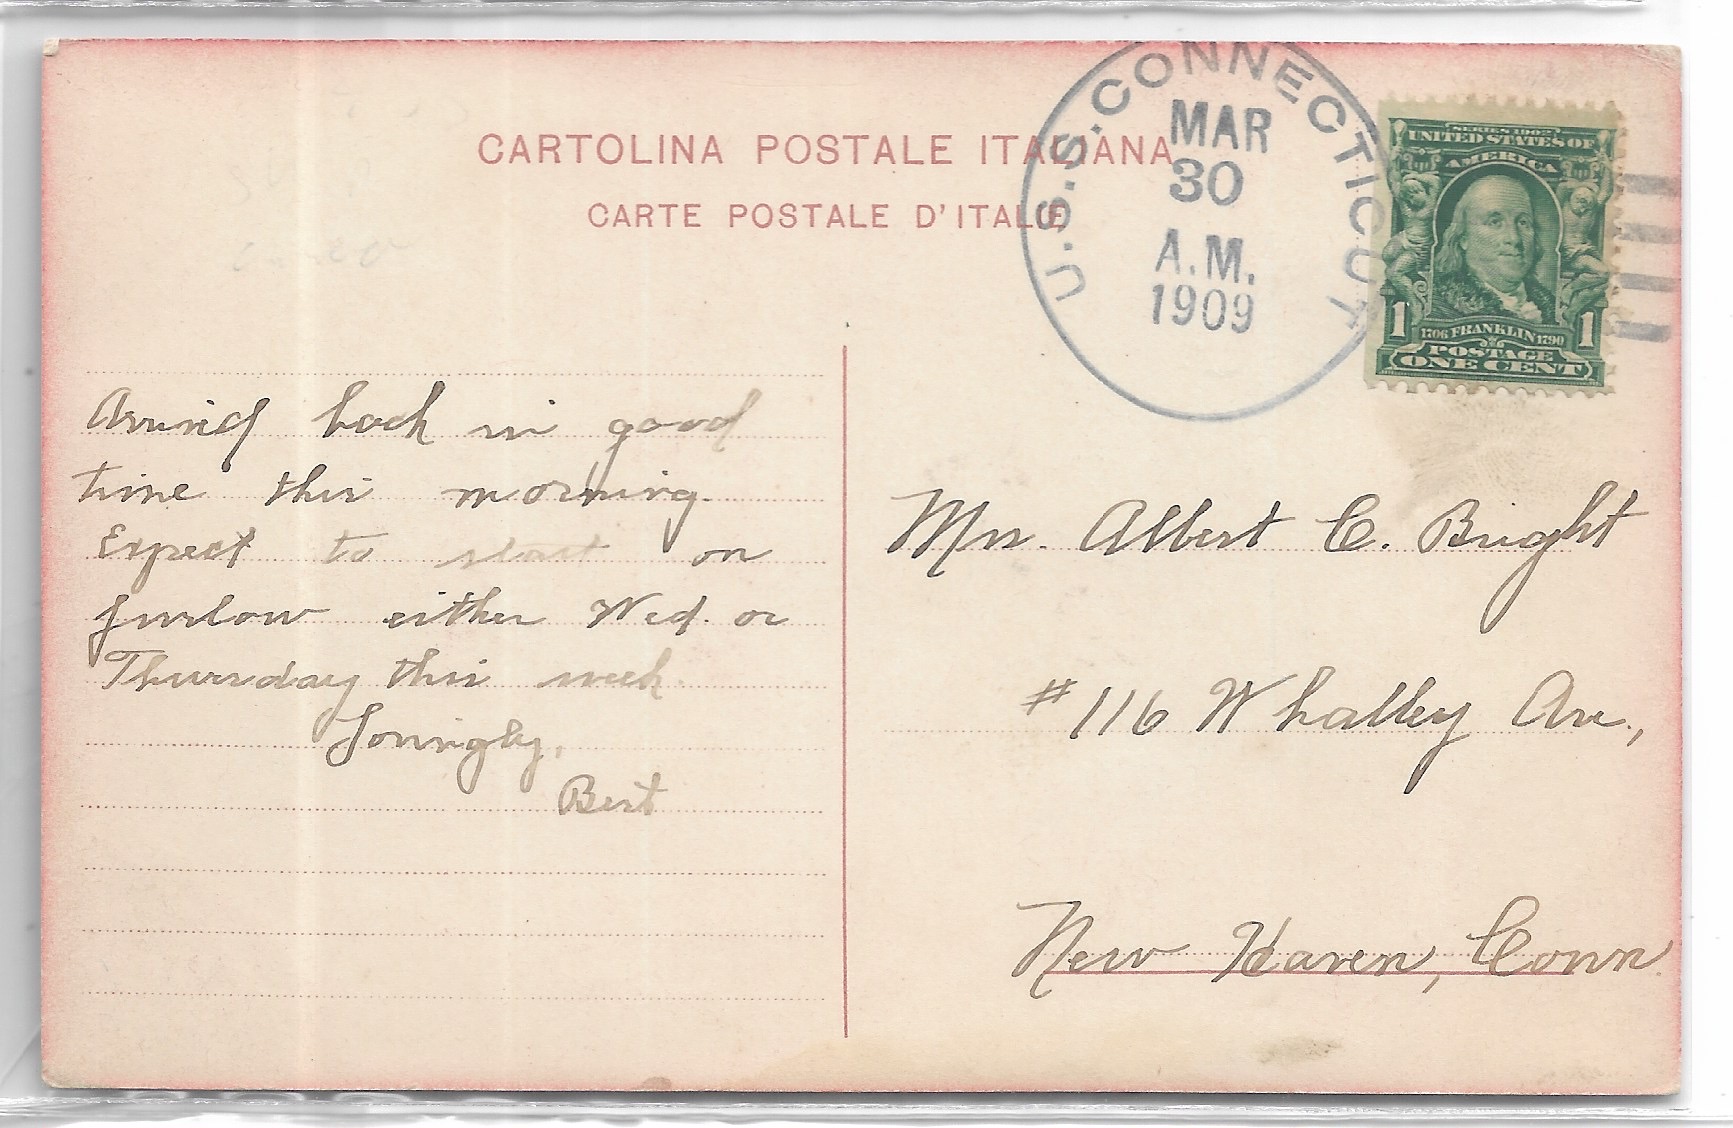 CARTOLINA POSTALE ITALIANA
CARTE POSTALE D'ITALIE
U.S.S. CONNECTICUT
MAR
30
A.M.
1909
SERIES 1902
UNITED STATES OF
AMERICA
1 1706 FRANKLIN 1790 1
POSTAGE
ONE CENT
Arrived back in good
time this morning.
Expect to start on
furlow either Wed. or
Thursday this week.
Lovingly,
Bert
Mrs. Albert C. Bright
#116 Whalley Ave.,
New Haven, Conn.